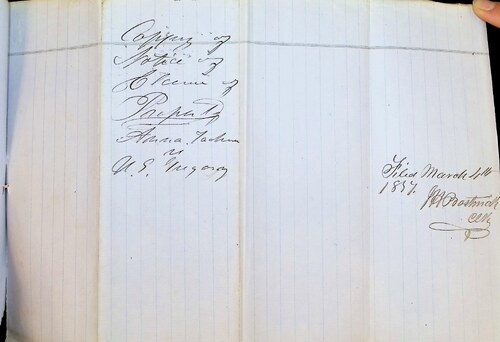 Coppy of
Notice of
Claim of
Property
Anna
vs
U. E. Gregory
Filed March 4th
1857.
Clk